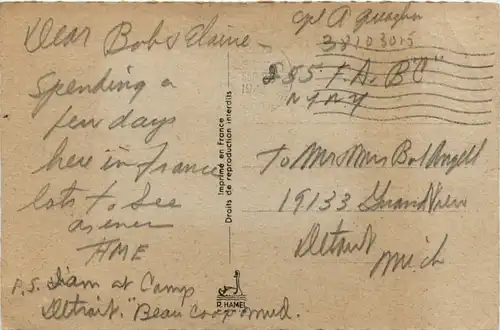 Dear Bob & Elaine -
Spending a
few days
here in France
lots to see
as ever
AME
P.S. I am at Camp
Detroit. "Beau coop" mud.
Imprimé en France
Droits de reproduction interdits
R. HAMEL
Cpl A
38103015
255 F.A. BN "C"
N.Y. N.Y.
To Mr Mrs Bob Angell
19133 Grand View
Detroit
Mich